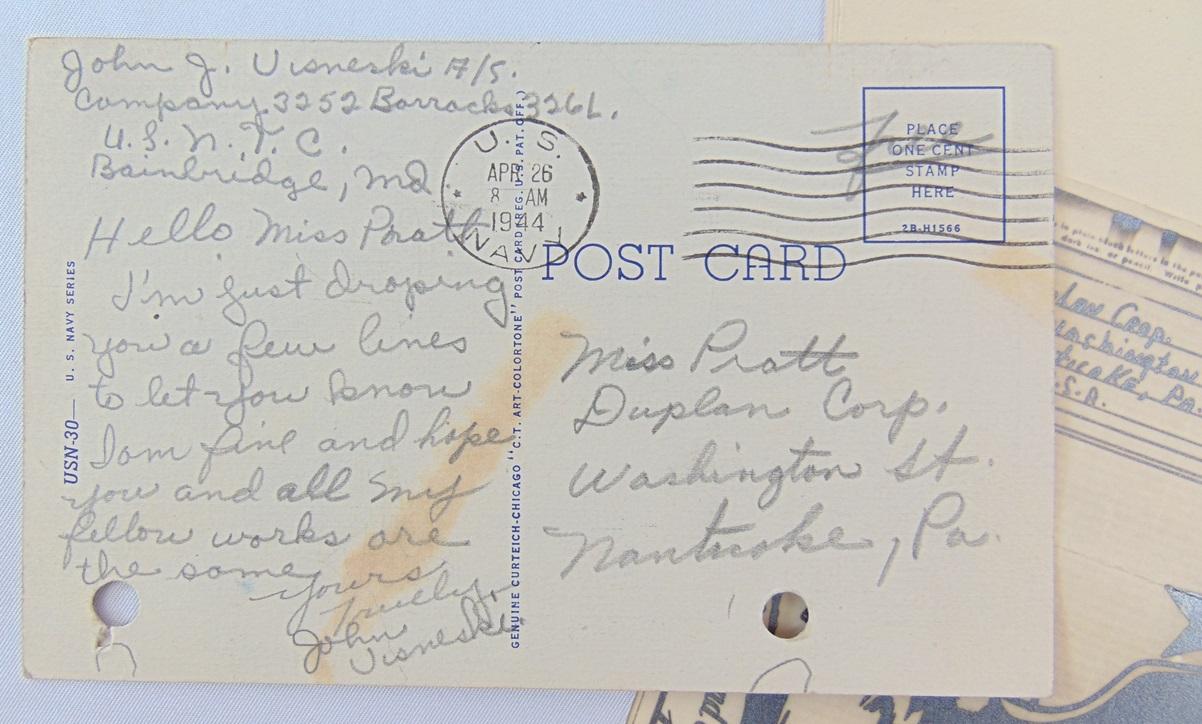 John J. Visneski A/S.
Company 3252 Barracks 326L.
U.S.N.T.C.
Bainbridge, Md
Hello Miss Pratt
I'm just droping
you a few lines
to let you know
I am fine and hope
you and all my
fellow works are
the same
yours
truely,
John
Visneski.
USN-30— U. S. NAVY SERIES
GENUINE CURTEICH-CHICAGO "C.T. ART-COLORTONE" POST CARD (REG. U.S. PAT. OFF.)
U. S.
APR 26
8 AM
1944
NAVY
Free
PLACE
ONE CENT
STAMP
HERE
2B-H1566
POST CARD
Miss Pratt
Duplan Corp.
Washington St.
Nanticoke, Pa.
Corp.
Washington
Pa
S.A.